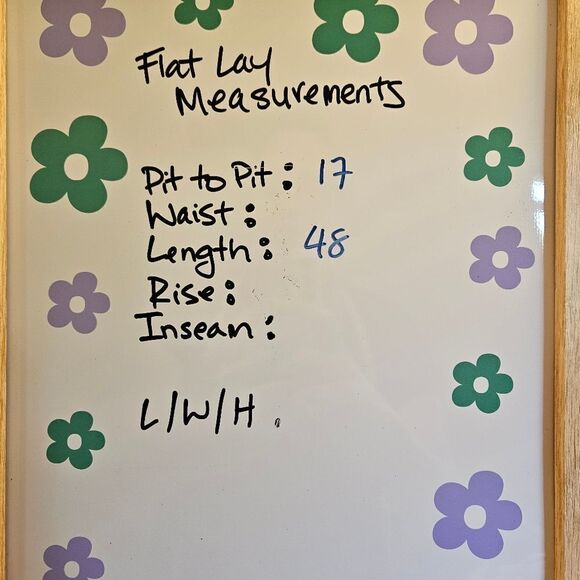 Flat Lay
Measurements
Pit to Pit: 17
Waist:
Length: 48
Rise:
Insean:
L/W/H.